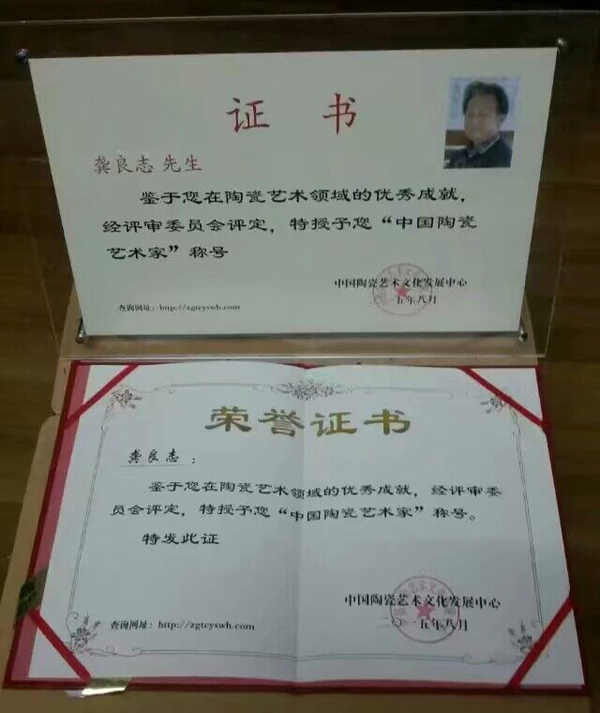 证 书
龚良志 先生
鉴于您在陶瓷艺术领域的优秀成就，
经评审委员会评定，特授予您“中国陶瓷
艺术家”称号
中国陶瓷艺术文化发展中心
二〇一五年八月
查询网址：http://zgtcyswh.com
荣誉证书
龚良志：
鉴于您在陶瓷艺术领域的优秀成就，经评审委
员会评定，特授予您“中国陶瓷艺术家”称号。
特发此证
中国陶瓷艺术文化发展中心
二〇一五年八月
查询网址：http://zgtcyswh.com